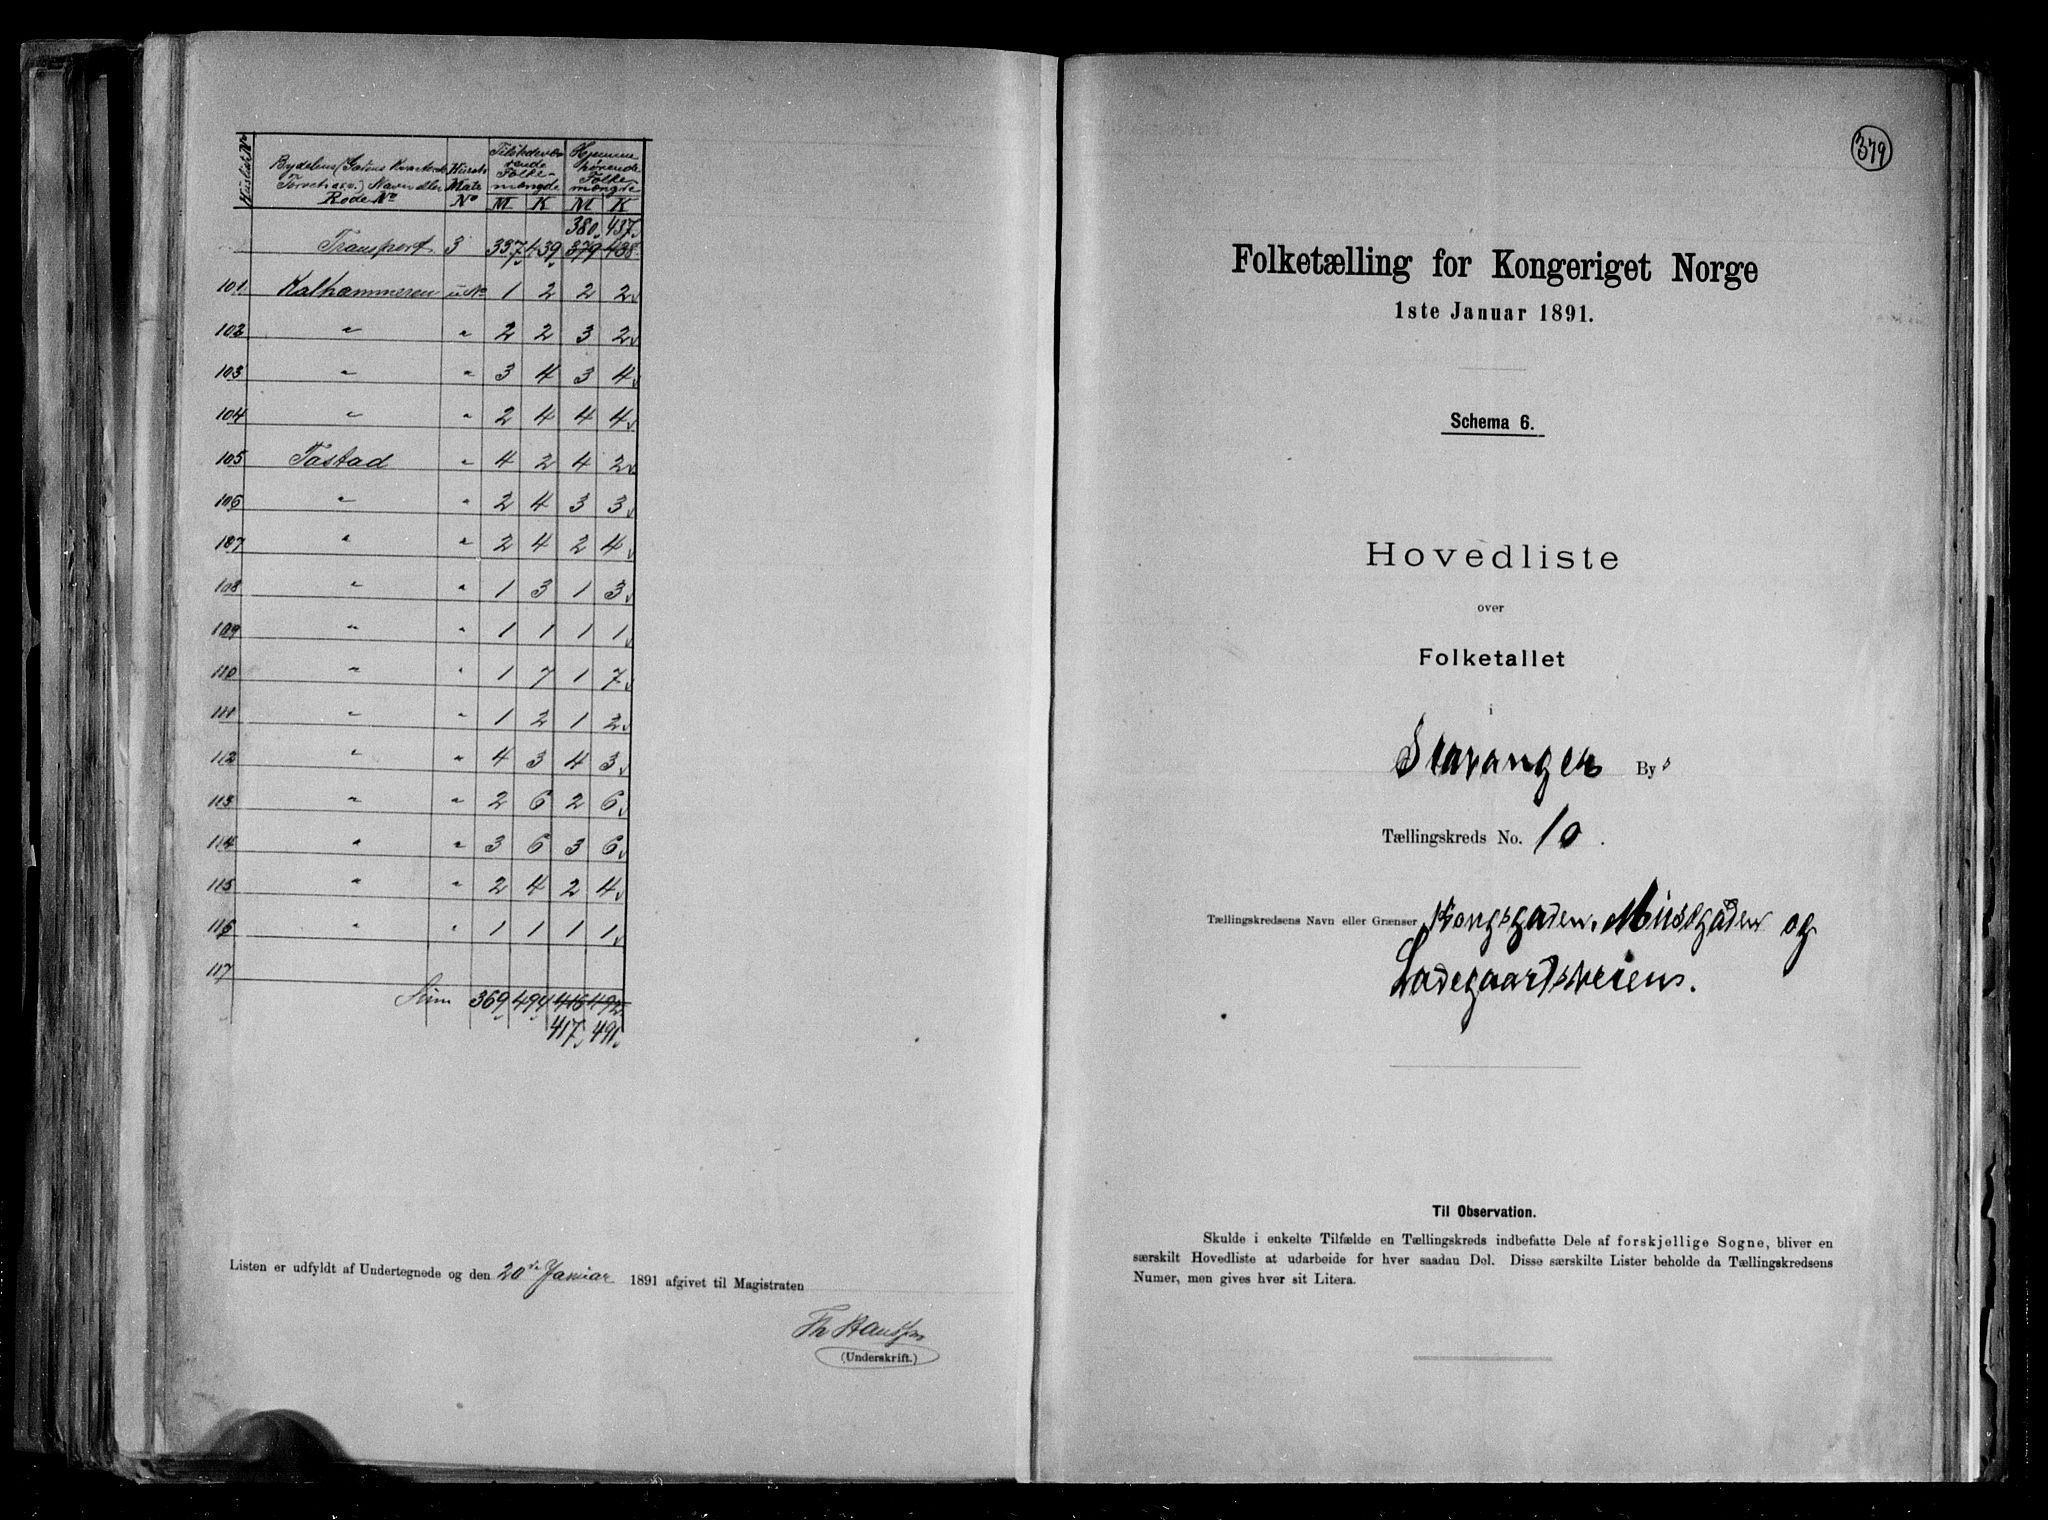 Huslist No
Bydelens (Gadens Kvarterets Torvets o.s.v.) Navn eller Rode No
Matr No
Tilstedeværende Folkemængde
Hjemmehørende Folkemængde
M K M K
380 437
Transport 3 337 439 379 438
101 Kalhammeren u No 1 2 2 2
102 " " 2 2 3 2
103 " " 3 4 3 4
104 " " 2 4 4 4
105 Tastad " 4 2 4 2
106 " " 2 4 3 3
107 " " 2 4 2 4
108 " " 1 3 1 3
109 " " 1 1 1 1
110 " " 1 7 1 7
111 " " 1 2 1 2
112 " " 4 3 4 3
113 " " 2 6 2 6
114 " " 3 6 3 6
115 " " 2 4 2 4
116 " " 1 1 1 1
117
Sum 369 494 416 492
417 491
Listen er udfyldt af Undertegnede og den 20de Januar 1891 afgivet til Magistraten
Th Hanssen
(Underskrift.)
379
Folketælling for Kongeriget Norge
1ste Januar 1891.
Schema 6.
Hovedliste
over
Folketallet
i
Stavanger By
Tællingskreds No. 10.
Tællingskredsens Navn eller Grænser Kongsgaden, Musegaden og
Ladegaardsveiens.
Til Observation.
Skulde i enkelte Tilfælde en Tællingskreds indbefatte Dele af forskjellige Sogne, bliver en
særskilt Hovedliste at udarbeide for hver saadan Del. Disse særskilte Lister beholde da Tællingskredsens
Numer, men gives hver sit Litera.